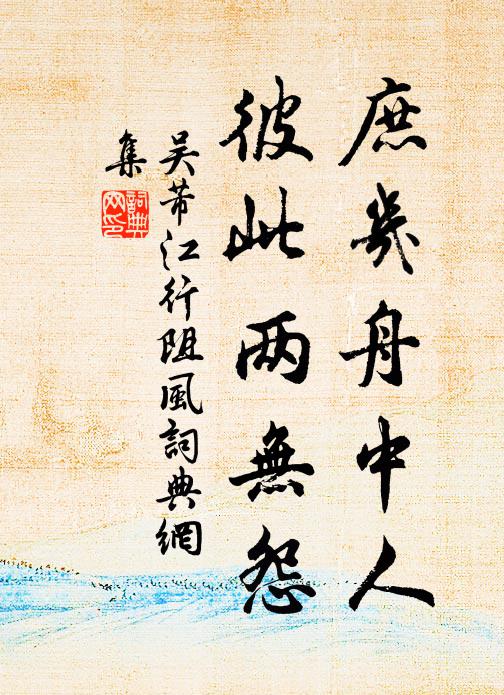 庶幾舟中人
彼此两無怨
吴芾江行阻風詞典網
集
詞典
网印